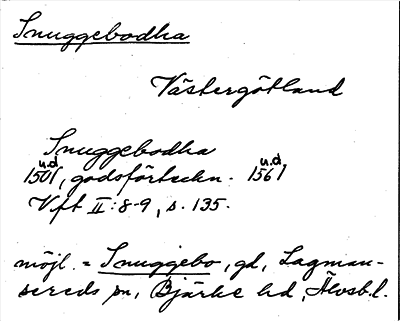 Snuggebodha
Västergötland
Snuggebodha
u.d. u.d.
1501, godsförteckn. 1561
Vft II:8-9, s. 135.
möjl. = Snuggebo, gd, Lagman-
sereds sn, Bjärke hd, Älvsb.l.